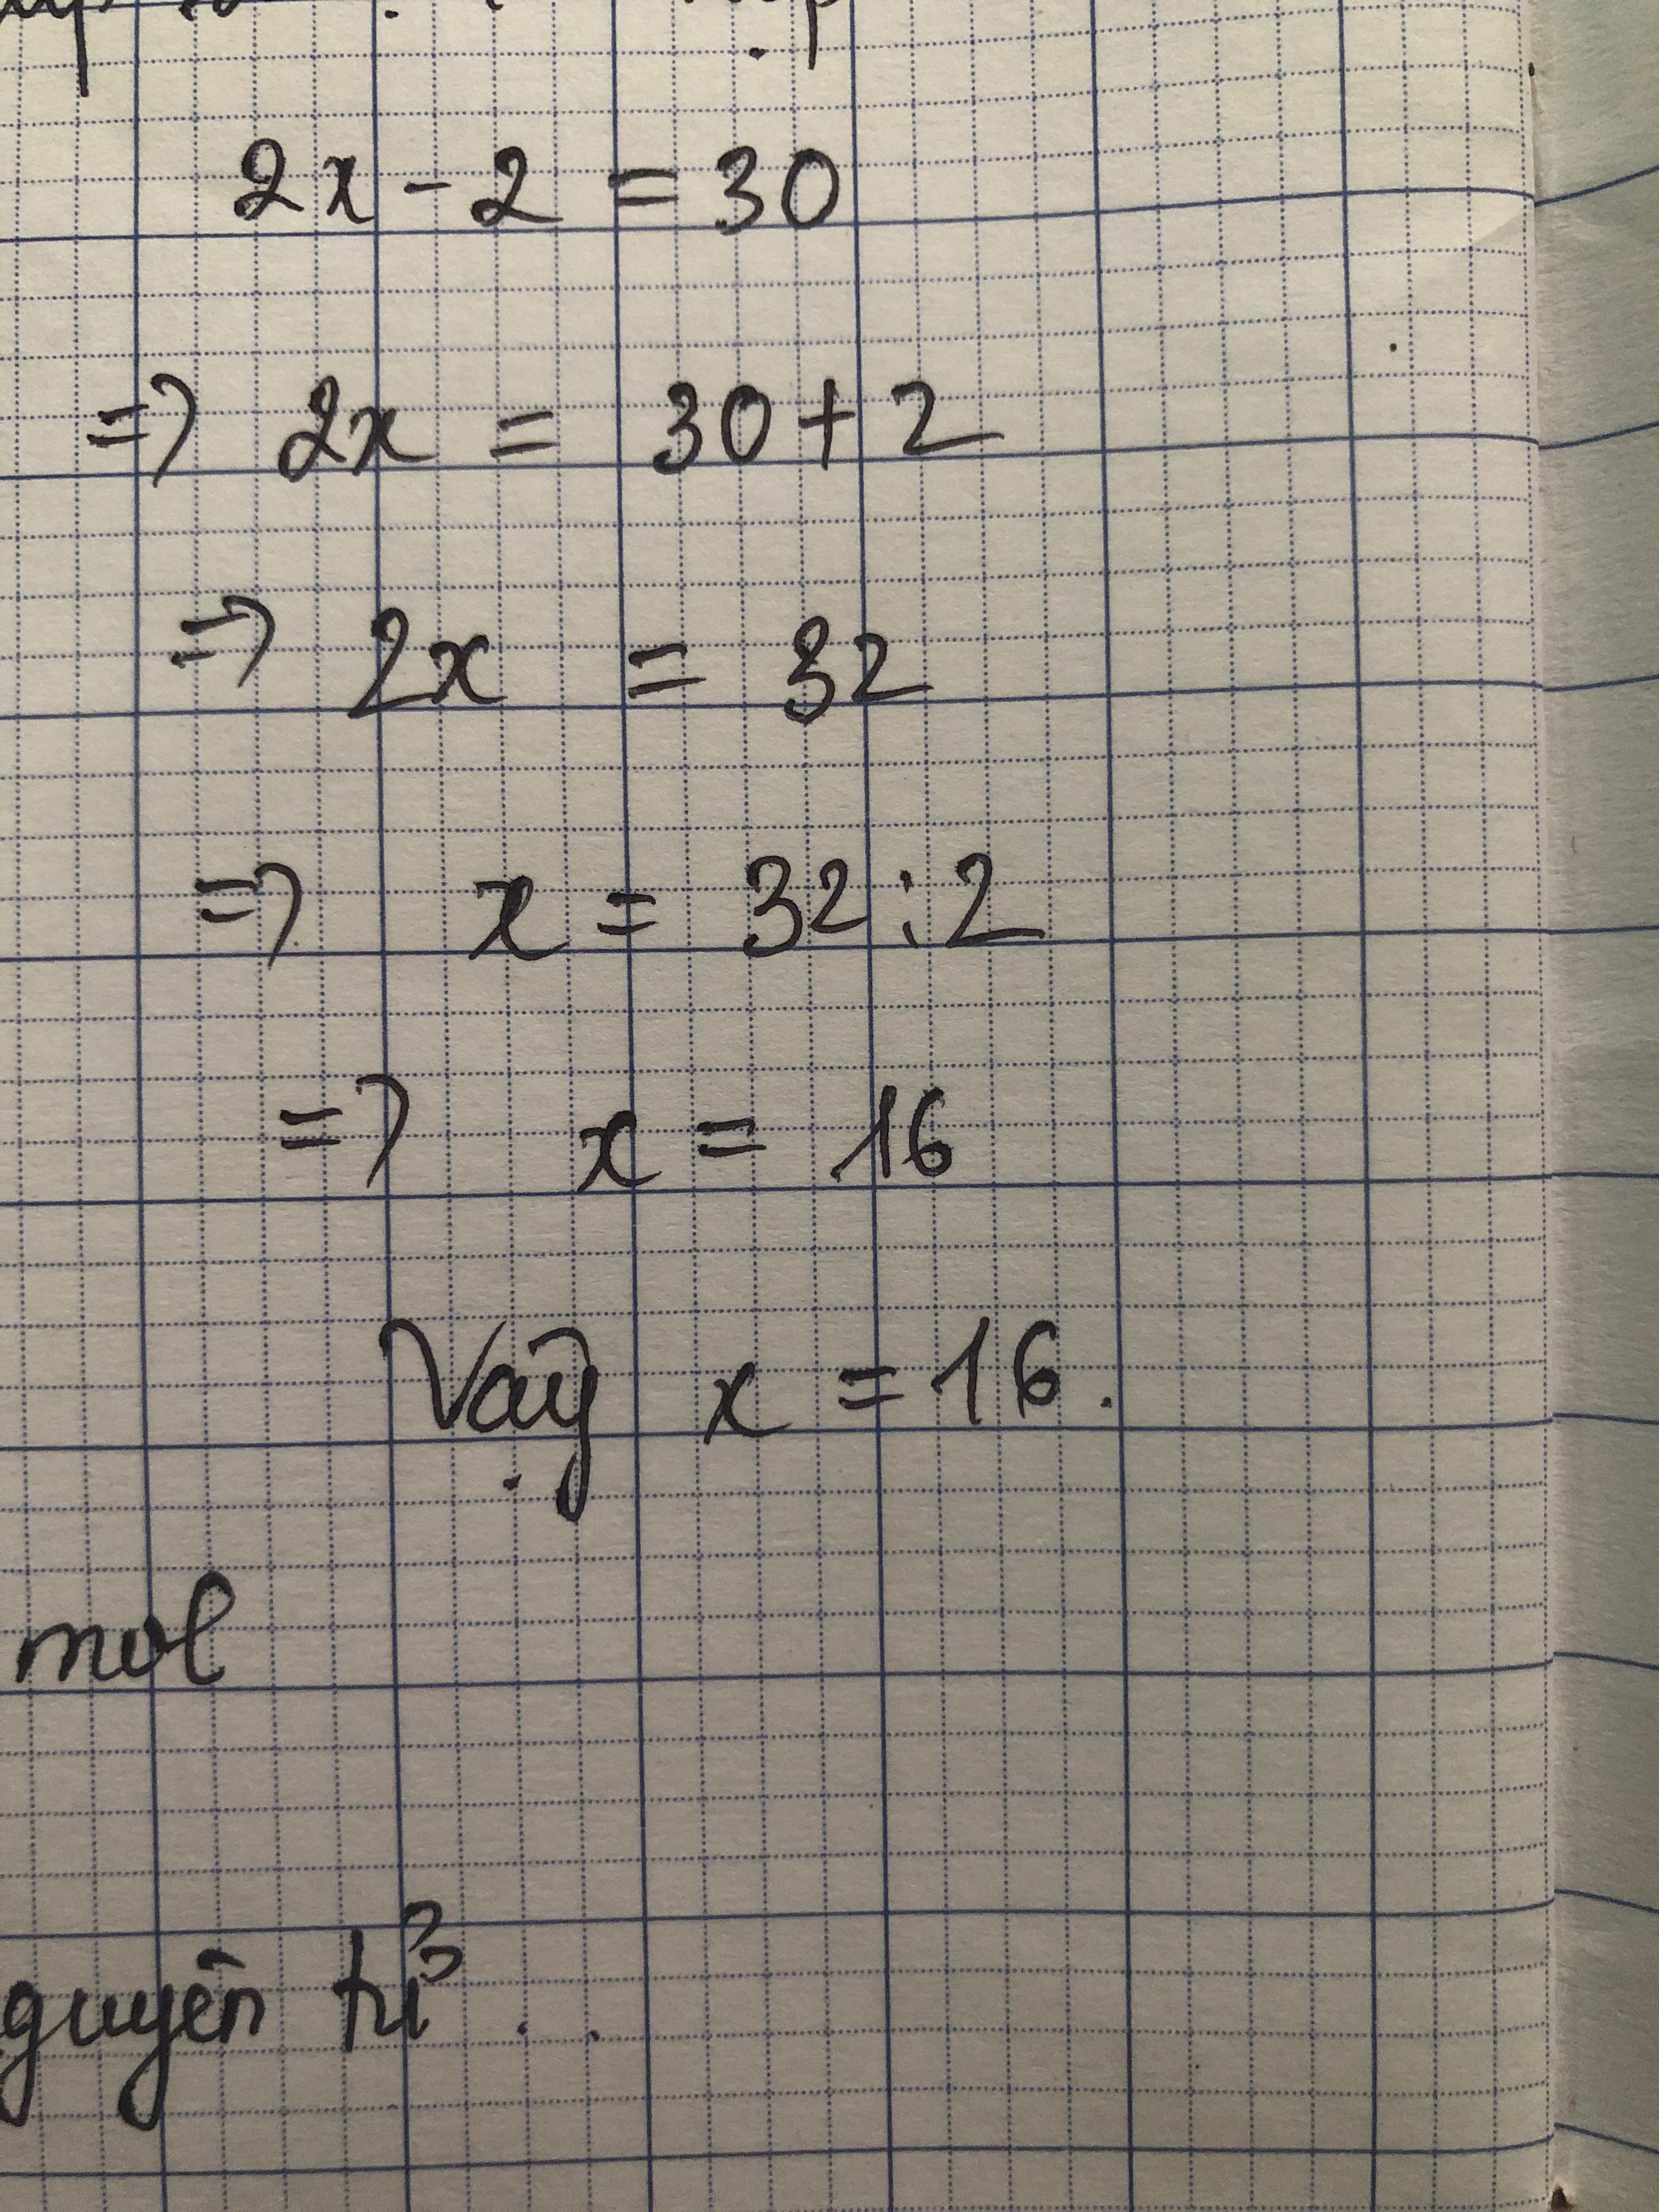 2x - 2 = 30
=> 2x = 30 + 2
=> 2x = 32
=> x = 32 : 2
=> x = 16
Vậy x = 16.
mol
guyên tử..